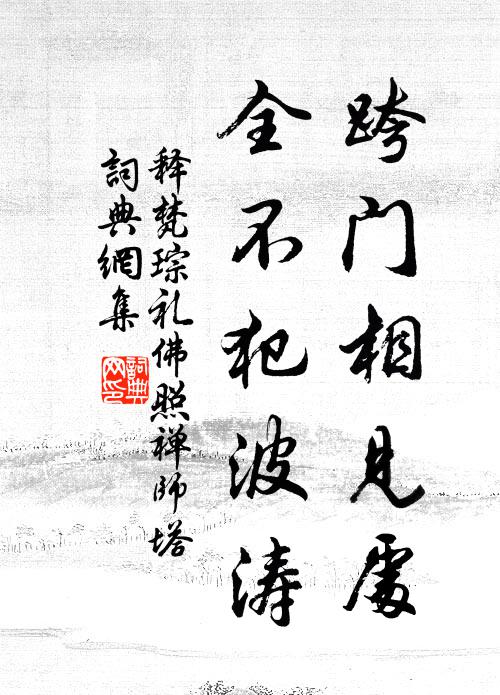 跨门相见处
全不犯波涛
释梵琮礼佛照禅师塔
词典網集
詞典
网印